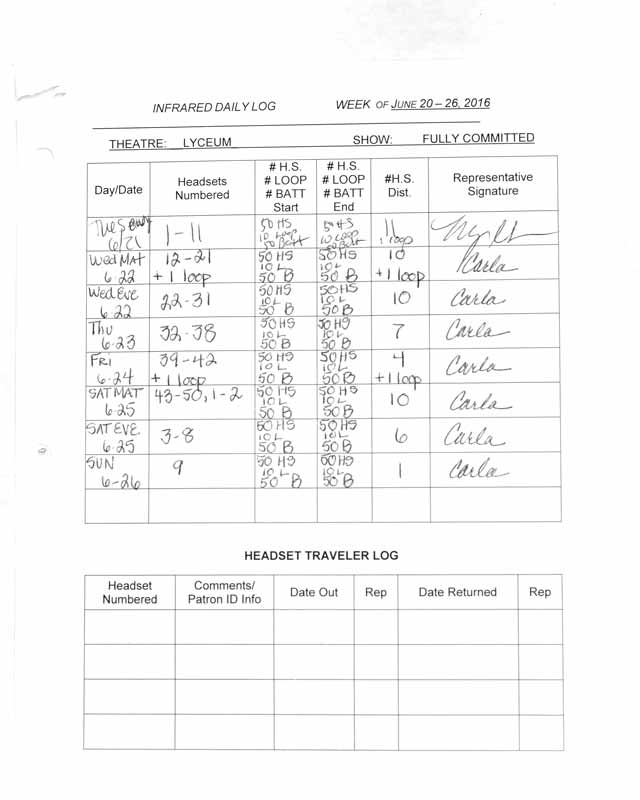 INFRARED DAILY LOG WEEK OF JUNE 20 – 26, 2016
THEATRE: LYCEUM SHOW: FULLY COMMITTED
Day/Date
Headsets
Numbered
# H.S.
# LOOP
# BATT
Start
# H.S.
# LOOP
# BATT
End
#H.S.
Dist.
Representative
Signature
6/21
1-11
50 HS
10 Loop
50 Batt
50 HS
10 Loop
50 Batt
11
1 loop
Wed MAT
6-22
12-21
+ 1 loop
50 HS
10 L
50 B
50 HS
10 L
50 B
10
+ 1 loop
Carla
Wed Eve
6-22
22-31
50 HS
10 L
50 B
50 HS
10 L
50 B
10
Carla
Thu
6-23
32-38
50 HS
10 L
50 B
50 HS
10 L
50 B
7
Carla
FRI
6-24
39-42
+ 1 loop
50 HS
10 L
50 B
50 HS
10 L
50 B
4
+ 1 loop
Carla
SAT MAT
6-25
43-50, 1-2
50 HS
10 L
50 B
50 HS
10 L
50 B
10
Carla
SAT EVE
6-25
3-8
50 HS
10 L
50 B
50 HS
10 L
50 B
6
Carla
SUN
6-26
9
50 HS
10 L
50 B
50 HS
10 L
50 B
1
Carla
HEADSET TRAVELER LOG
Headset
Numbered
Comments/
Patron ID Info
Date Out
Rep
Date Returned
Rep